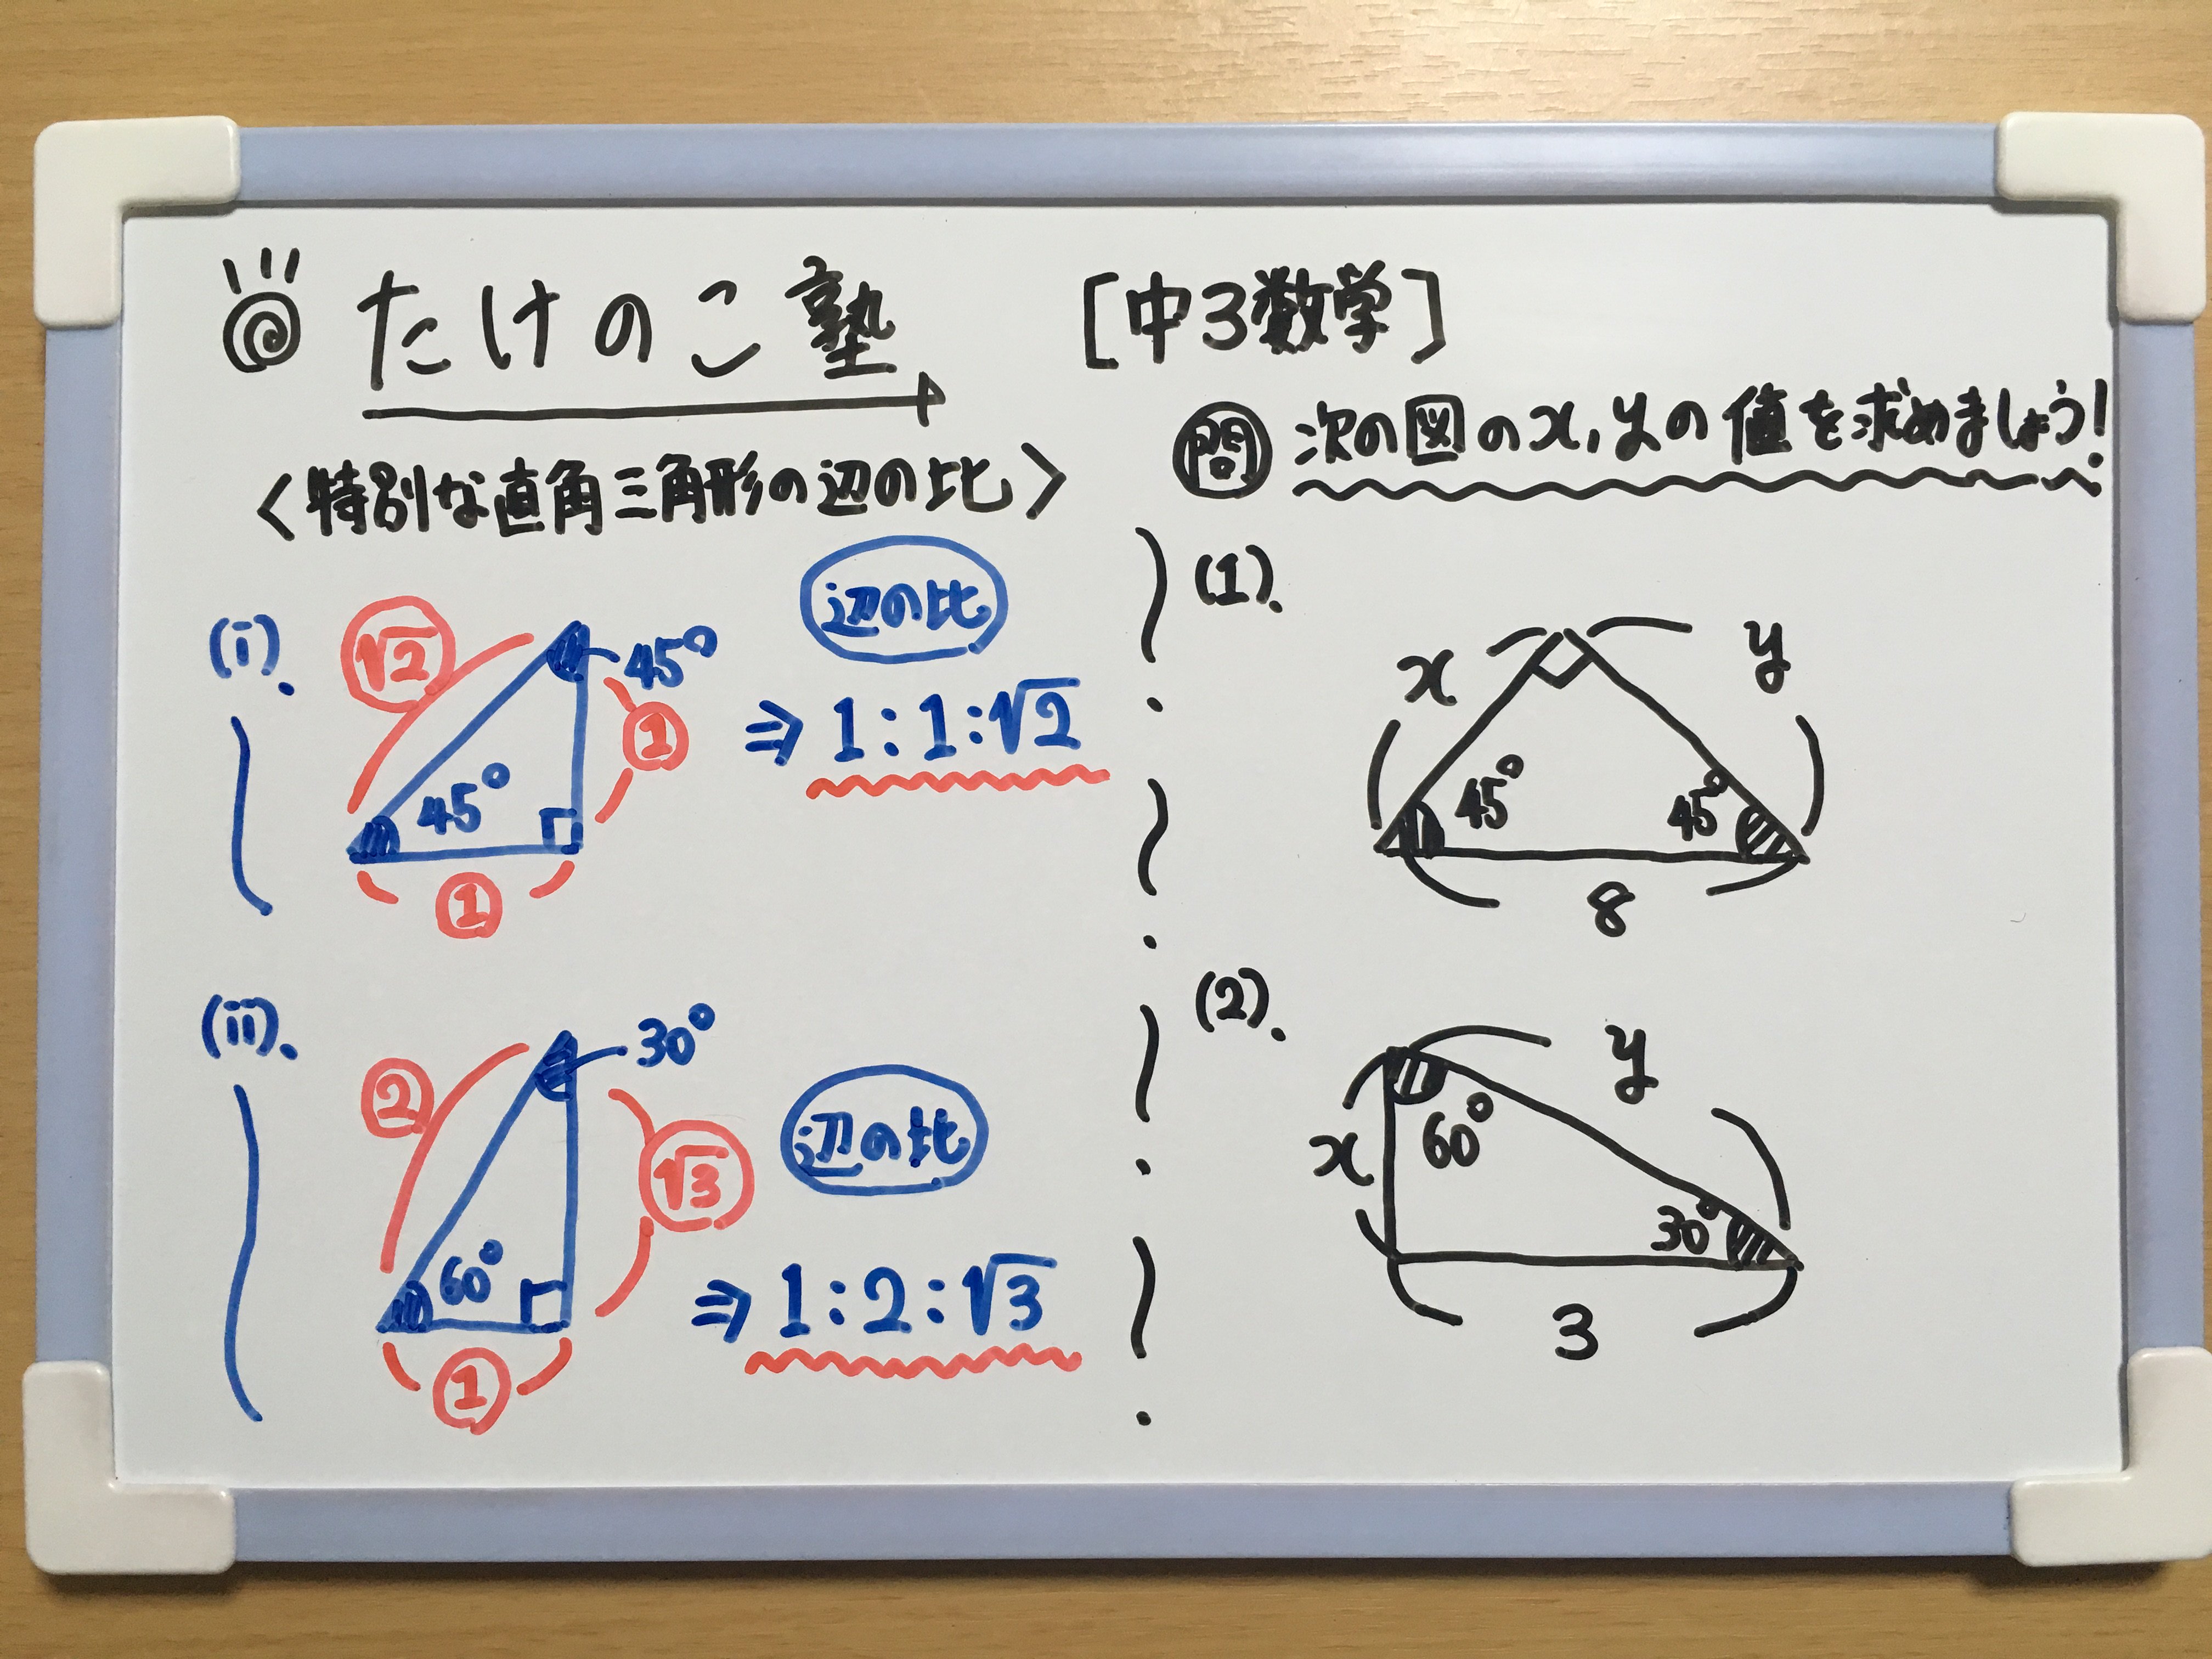 たけのこ塾
[中3数学]
<特別な直角三角形の辺の比>
(i).
√2
45°
1
45°
1
辺の比
⇒ 1:1:√2
(ii).
2
30°
√3
60°
1
辺の比
⇒ 1:2:√3
問 次の図のx,yの値を求めましょう!
(1).
x
y
45°
45°
8
(2).
y
x
60°
30°
3